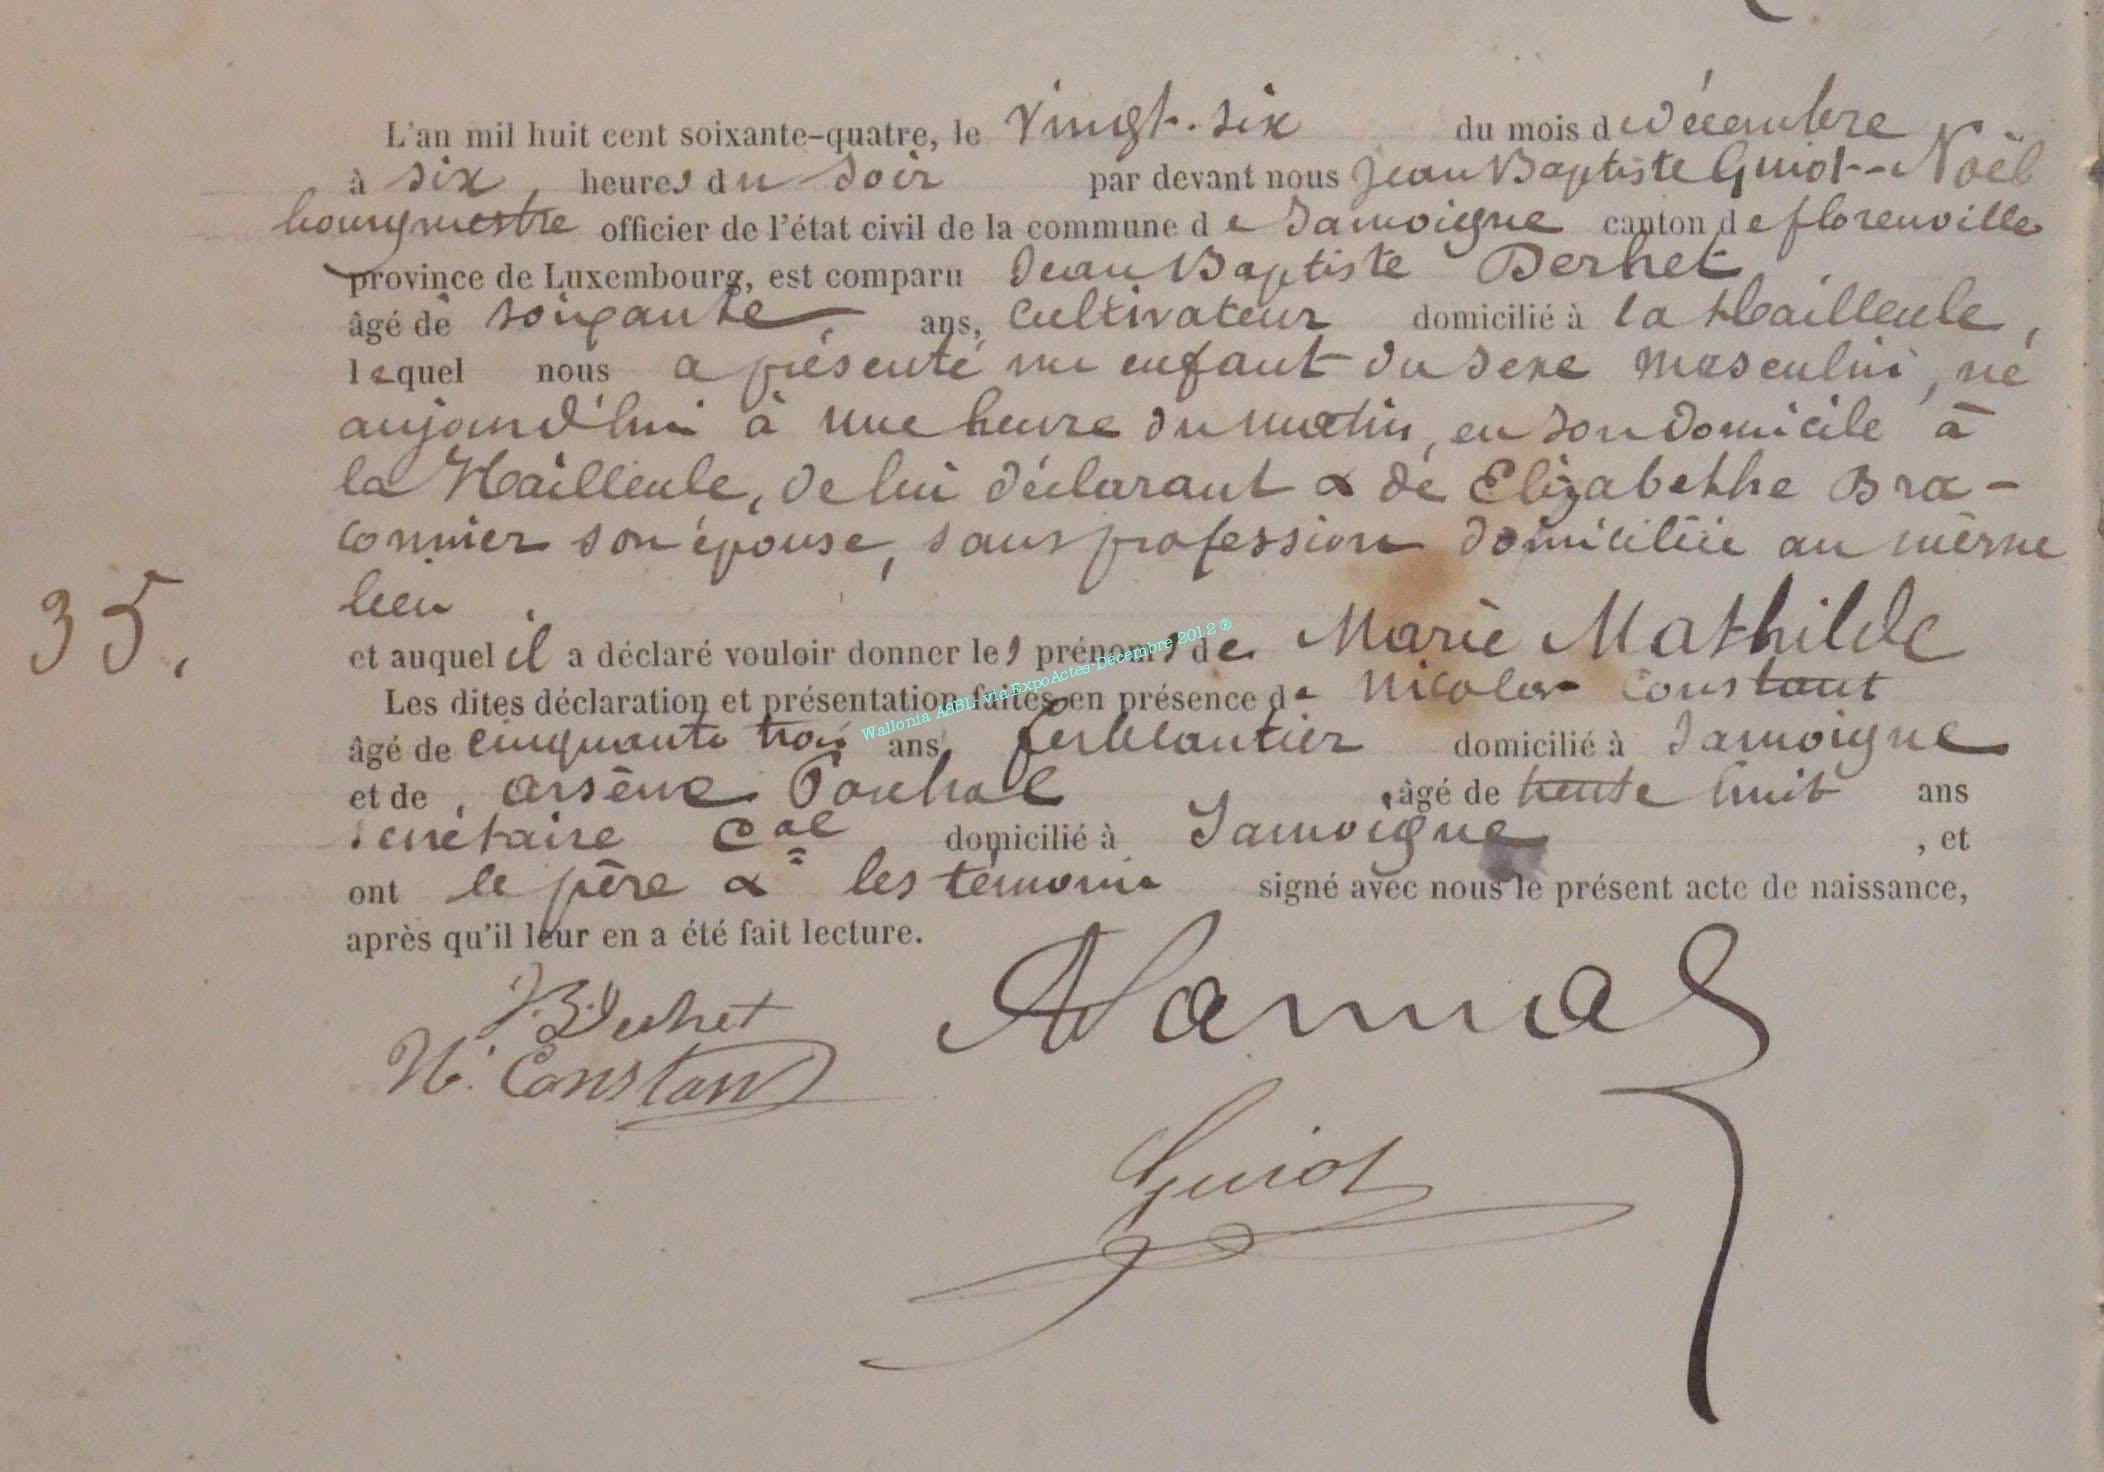 L'an mil huit cent soixante-quatre, le vingt-six du mois de décembre
à six heures du soir par devant nous Jean Baptiste Guiot-Noël
bourgmestre officier de l'état civil de la commune de Jamoigne canton de florenville
province de Luxembourg, est comparu Jean Baptiste Derhet
âgé de soixante, ans, cultivateur domicilié à la Hailleule,
lequel nous a présenté un enfant du sexe masculin, né
aujourd'hui à une heure du matin, en son domicile à
la Hailleule, de lui déclarant & de Elizabethe Bra-
connier son épouse, sans profession domiciliée au même
lieu
35.
et auquel il a déclaré vouloir donner les prénoms de Marie Mathilde
Les dites déclaration et présentation faites en présence de Nicolas Constant
âgé de cinquante trois ans, ferblantier domicilié à Jamoigne
et de, arsène âgé de trente huit ans
secrétaire cal domicilié à Jamoigne, et
ont le père & les témoins signé avec nous le présent acte de naissance,
après qu'il leur en a été fait lecture.
J.B. Derhet
N. Constant
Guiot
Wallonia ASBL Via ExpoActes-Décembre 2012 ®